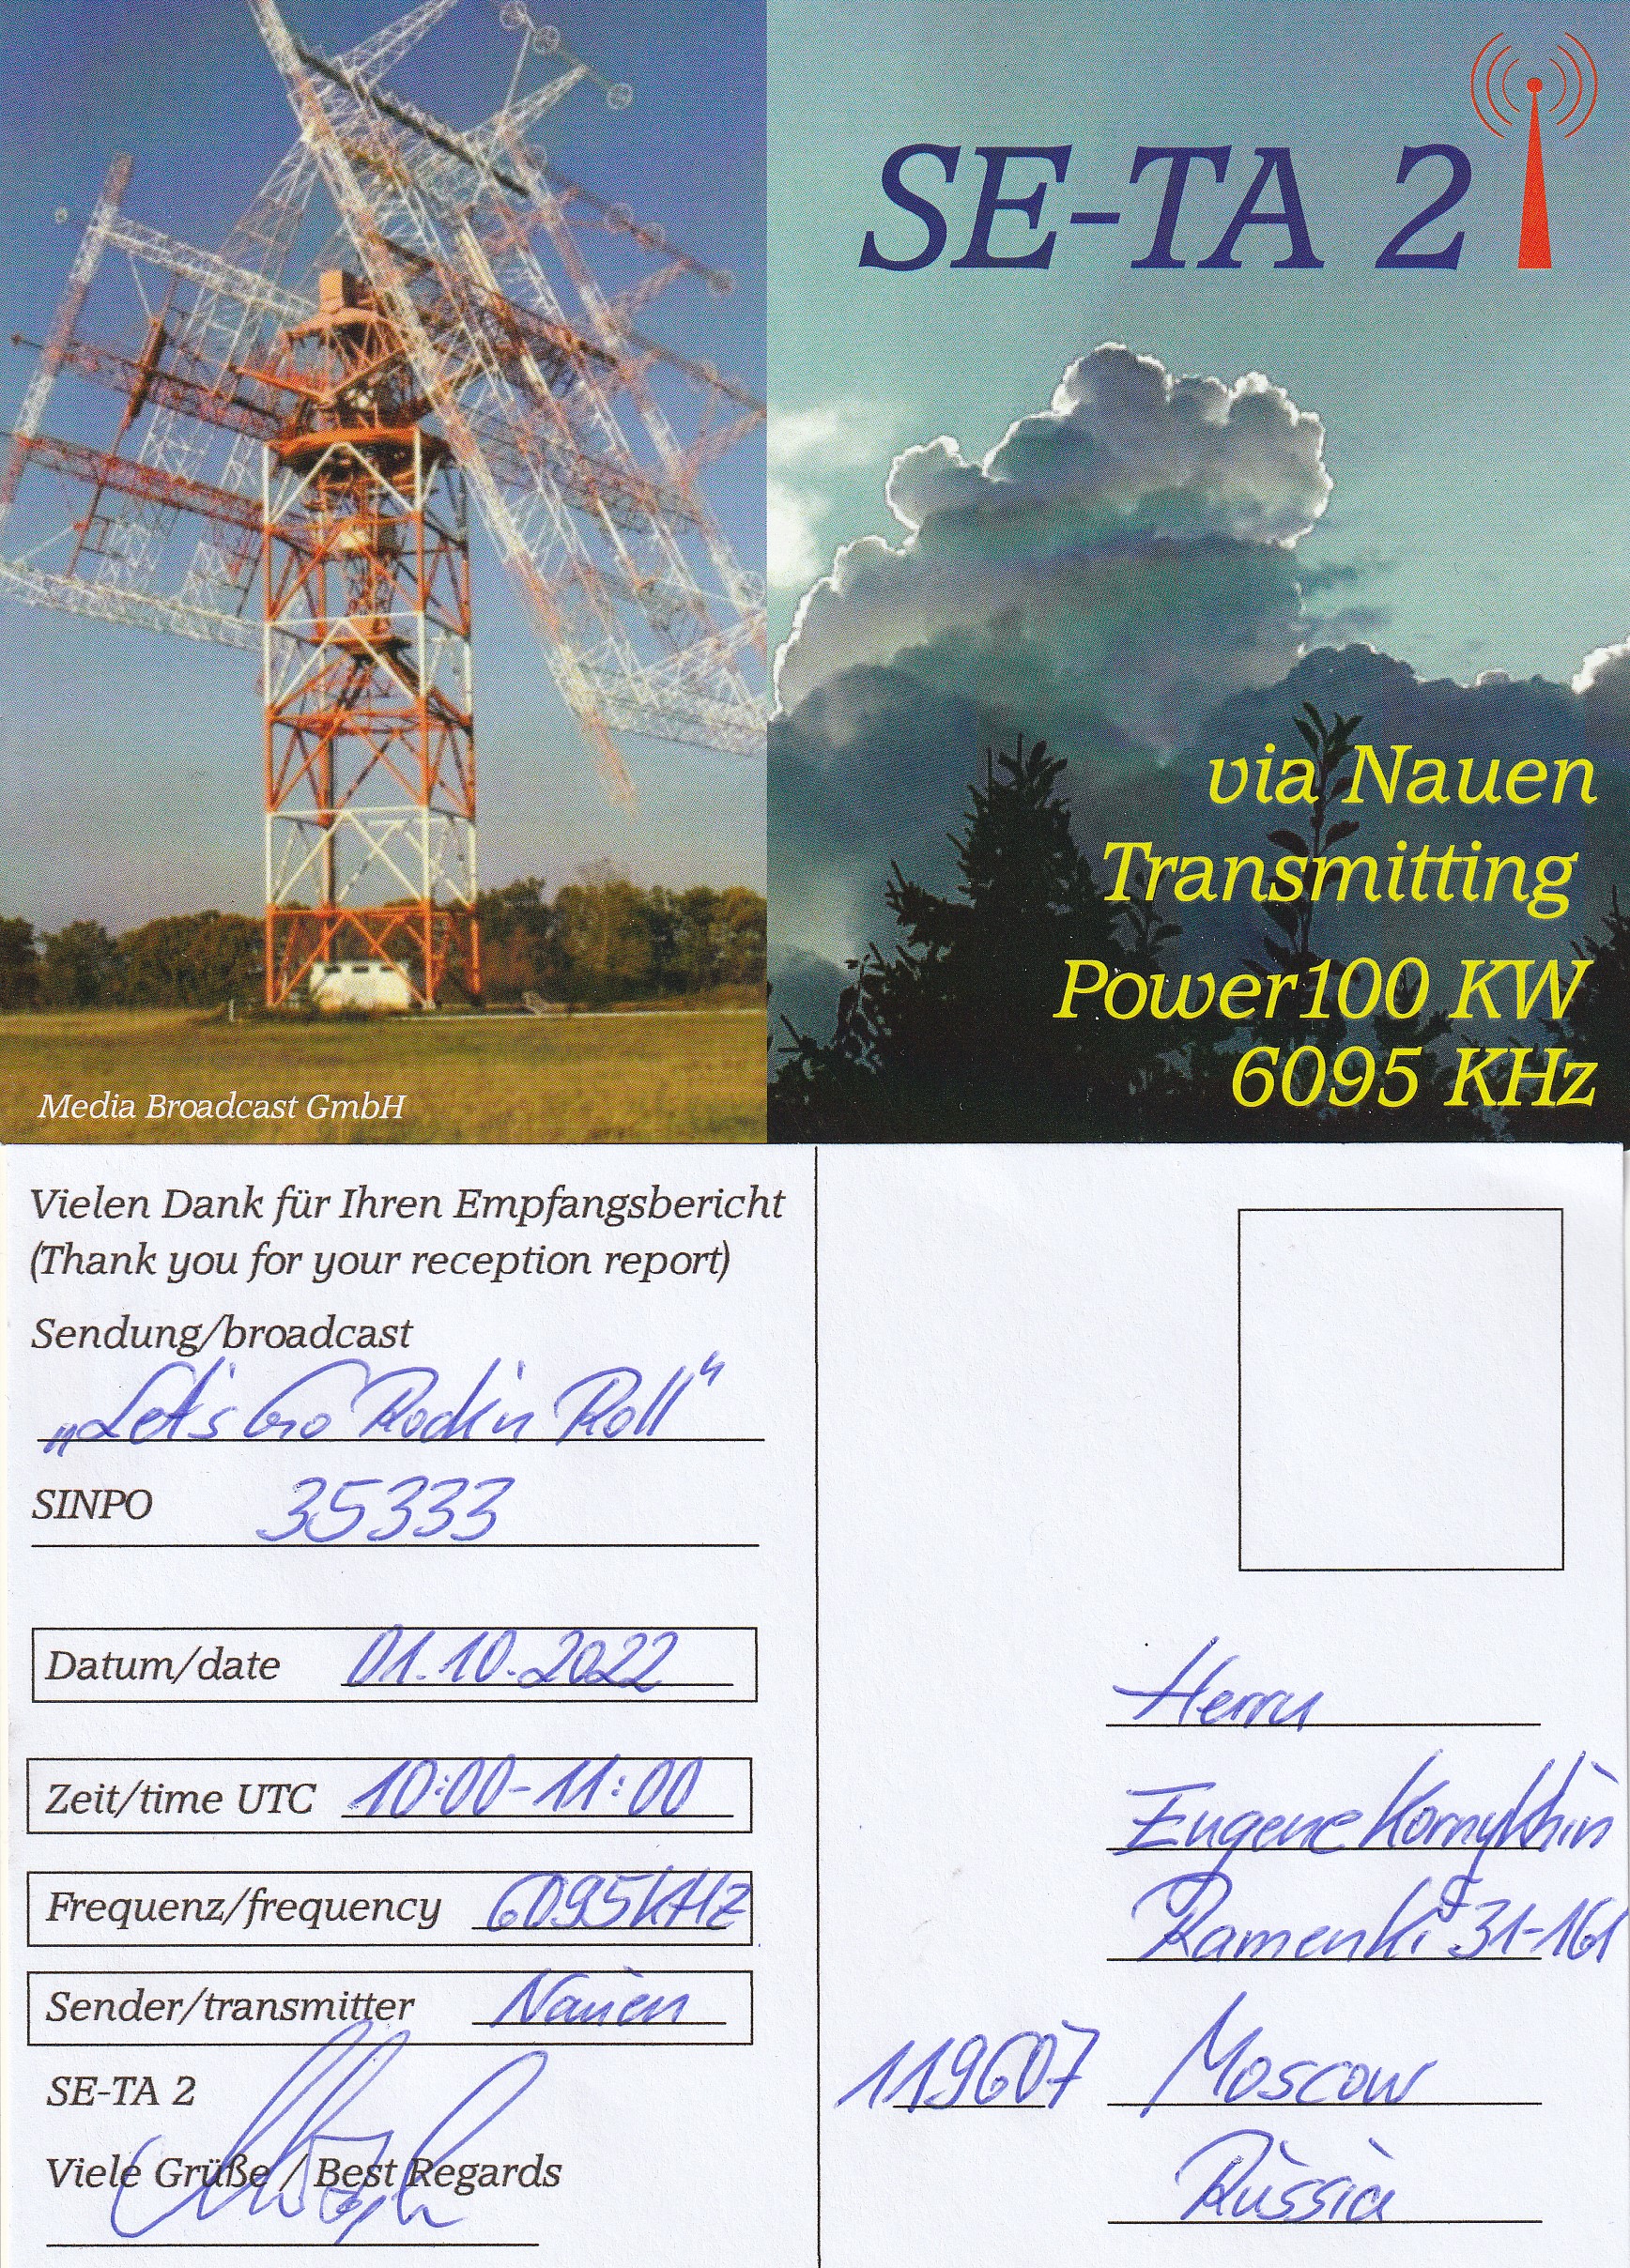 SE-TA 2
via Nauen
Transmitting
Power100 KW
6095 KHz
Media Broadcast GmbH
Vielen Dank für Ihren Empfangsbericht
(Thank you for your reception report)
Sendung/broadcast
„Let's Go Rock'n Roll“
SINPO 35333
Datum/date 01.10.2022
Zeit/time UTC 10:00-11:00
Frequenz/frequency 6095KHz
Sender/transmitter Nauen
SE-TA 2
Viele Grüße / Best Regards
Herrn
Eugene Kornykhin
Ramenki 31-161
119607 Moscow
Russia